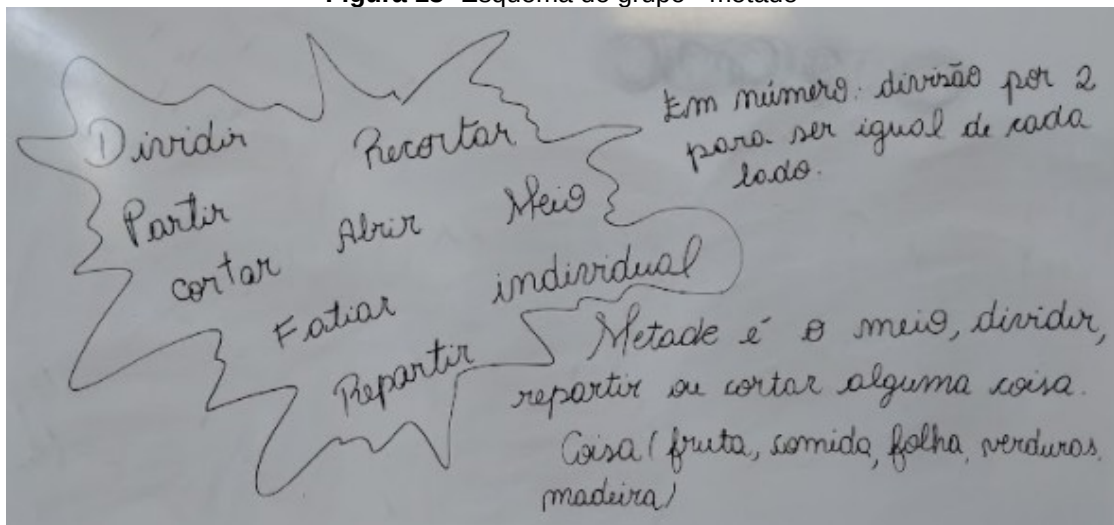 Dividir Recortar
Partir Abrir Meio
cortar individual
Fatiar
Repartir
Em número: divisão por 2
para ser igual de cada
lado.
Metade é o meio, dividir,
repartir ou cortar alguma coisa.
Coisa (fruta, comida, folha, verduras,
madeira)